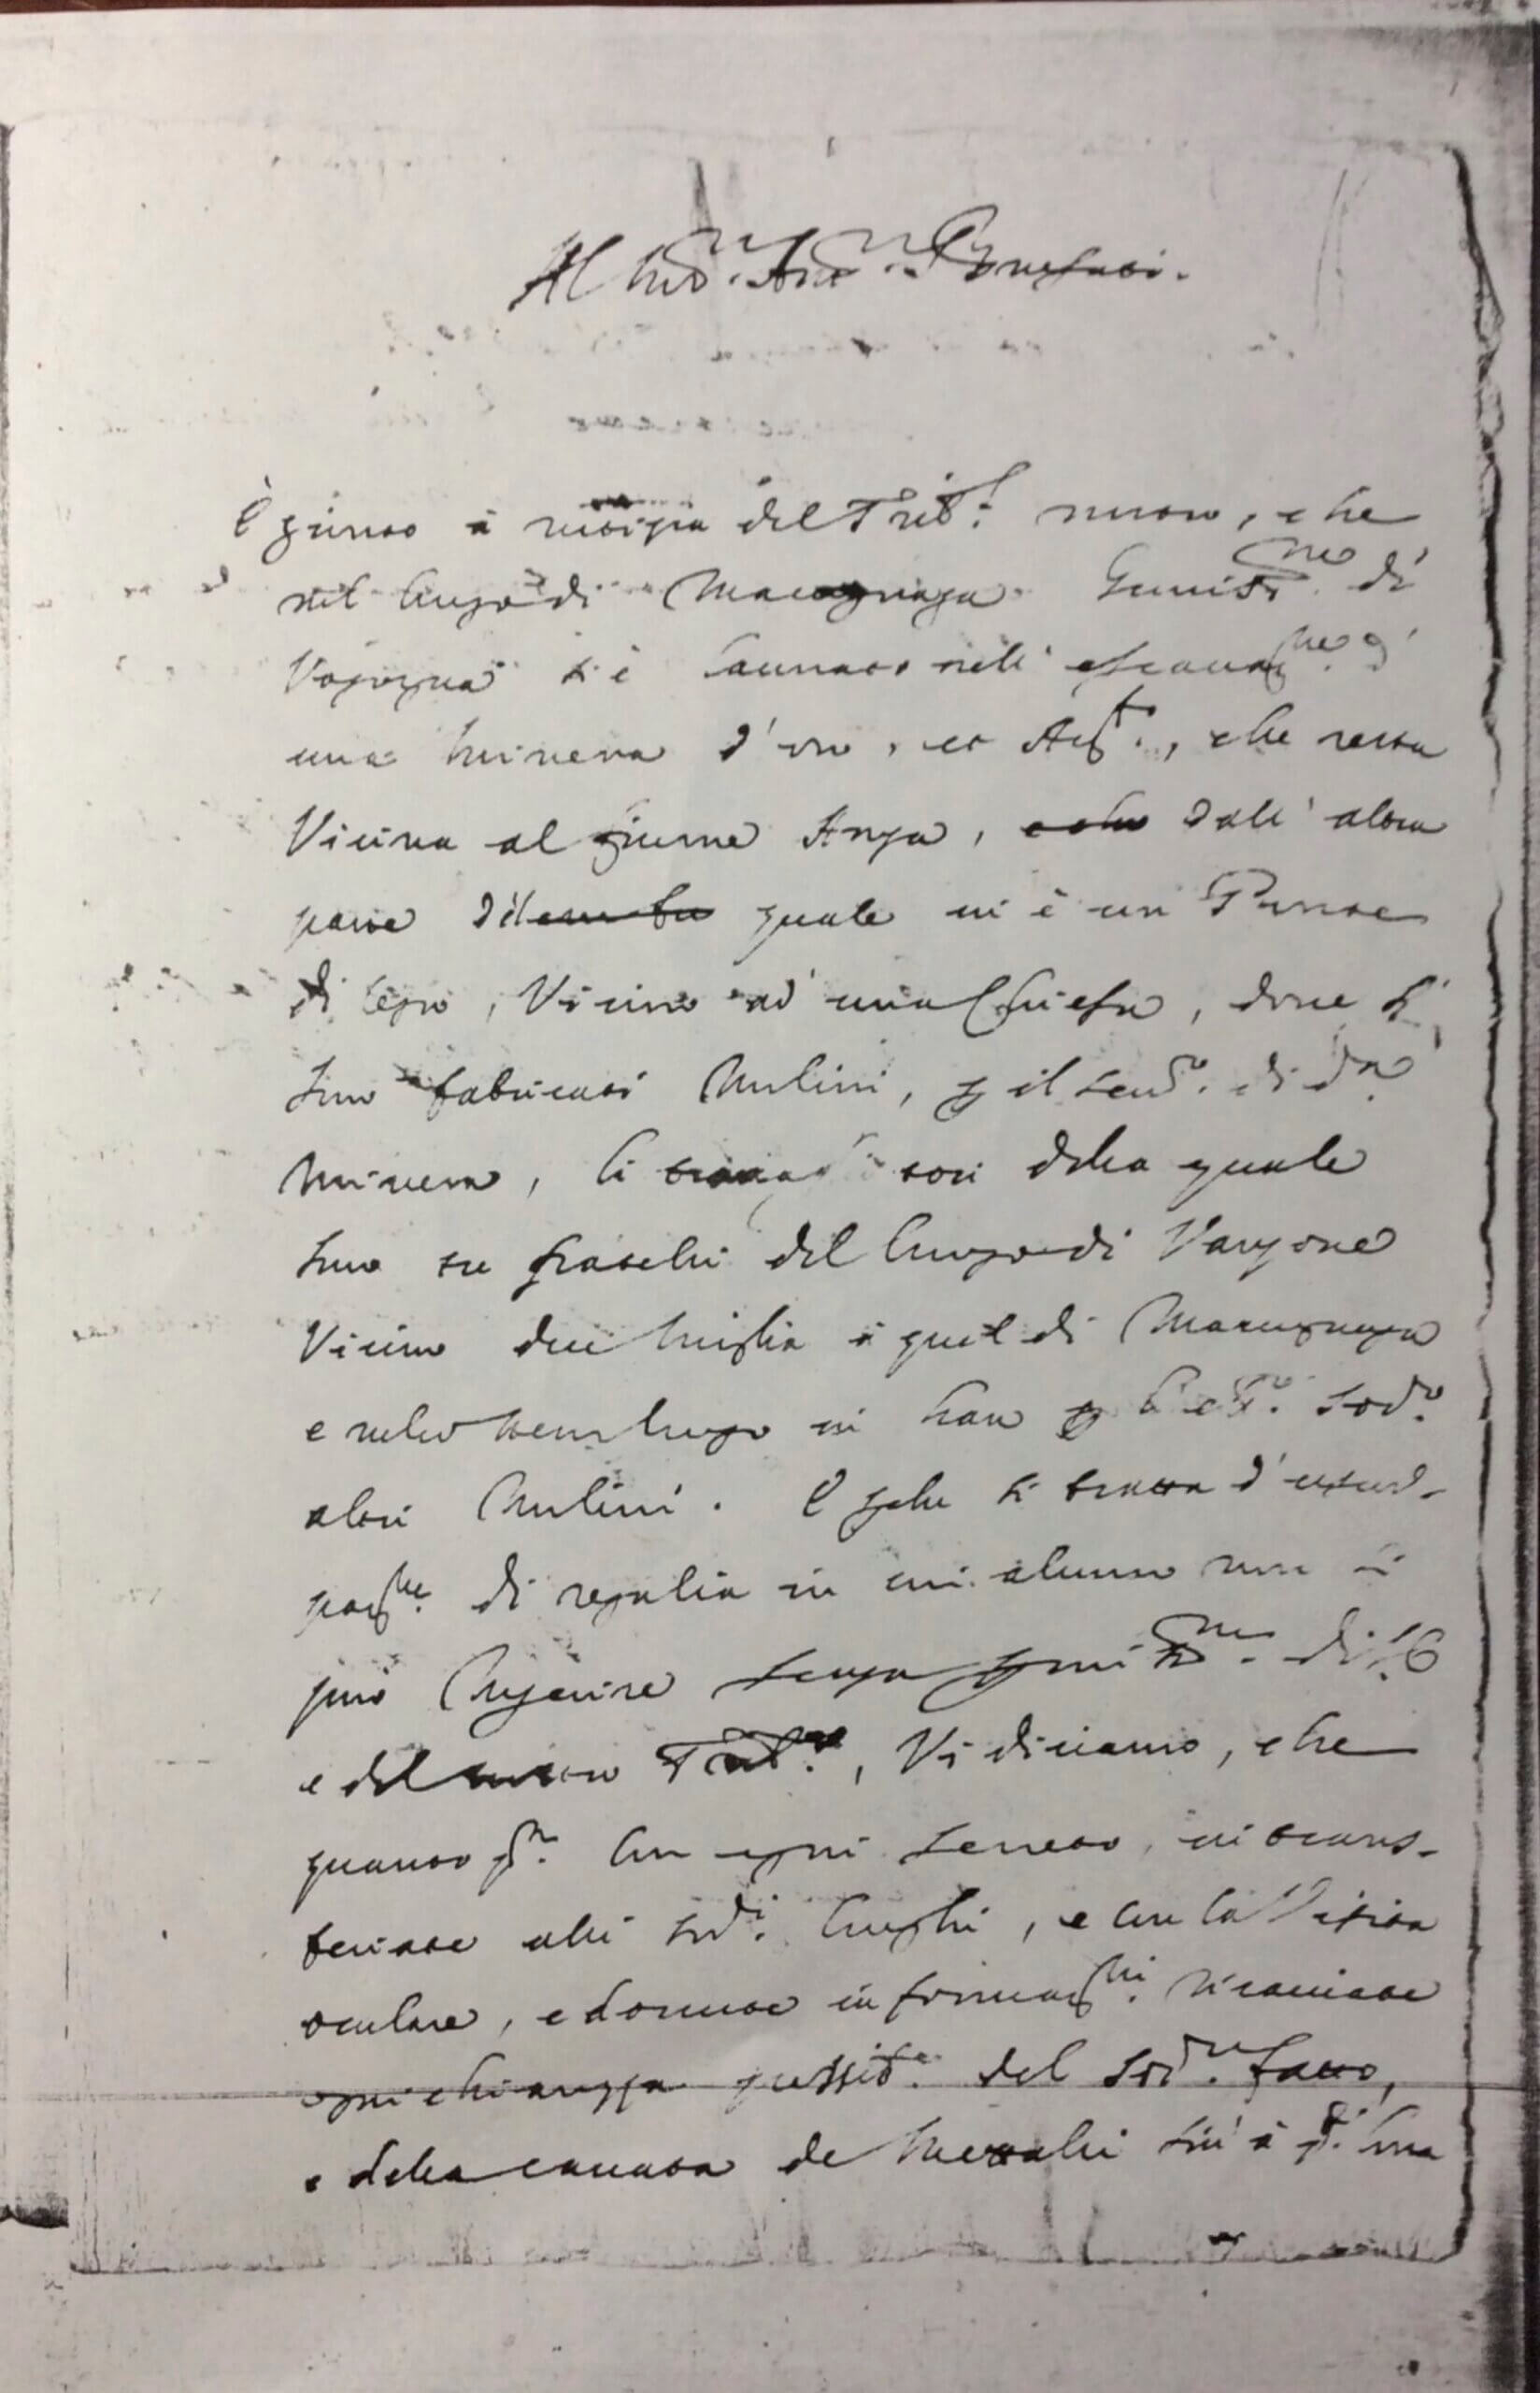 Al
È giunto à notizia del Trib.l nuovo, che
nel luogo di Macugnaga Giurisd.ne di
Vogogna si è lavorato nell' escavaz.ne d'
una minera d'oro, et Arg.to, che resta
Vicina al fiume Anza, dall' altra
parte del quale vi è un Ponte
di legno, Vicino ad una Chiesa, dove si
sono fabricati Molini, p il serv.o di d.a
minera, li della quale
sono tre fratelli del luogo di Vanzone
Vicino due miglia à quel di Macugnaga
e nello stesso luogo vi han p sod.o
altri Molini. E perche si tratta d'usur-
paz.ne di regalia in cui alcuno non si
può ingerire senza permiss.ne di S. E
e del nuovo Trib.le, Vi diciamo, che
quanto p.a con ogni secreto, vi trans-
feriate alli sod.i luoghi, e con la Visita
oculare, e dovute informaz.ni ricaviate
ogni chiarezza possib.e del sod.o fatto,
e della cavata de metalli sin' à q.a